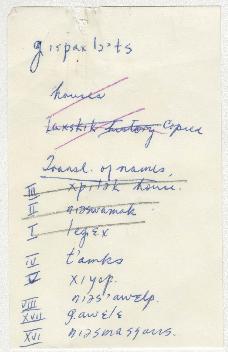 gispaxlo'ts
houses
Laxskik history Copied
Transl. of names,
III xpi'lək house.
II nισwamak
I legɛx
IV t'amks
V xiyɛp.
VIII nισs'awɛlp.
XVII gawɛlɛ
XVI nισmasgaus.